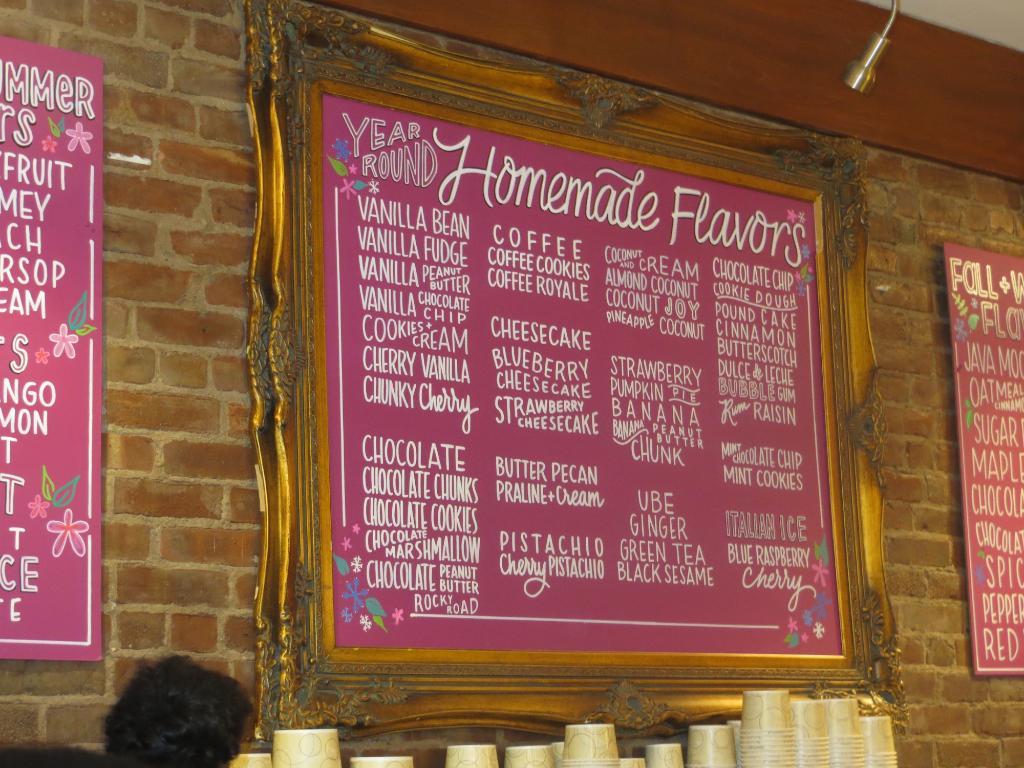 UMMER
RS
FRUIT
MEY
ACH
RSOP
EAM
S
NGO
MON
T
T
T
CE
TE
YEAR ROUND
Homemade Flavors
VANILLA BEAN
VANILLA FUDGE
VANILLA PEANUT BUTTER
VANILLA CHOCOLATE CHIP
COOKIES + CREAM
CHERRY VANILLA
CHUNKY Cherry
CHOCOLATE
CHOCOLATE CHUNKS
CHOCOLATE COOKIES
CHOCOLATE MARSHMALLOW
CHOCOLATE PEANUT BUTTER
ROCKY ROAD
COFFEE
COFFEE COOKIES
COFFEE ROYALE
CHEESECAKE
BLUEBERRY CHEESECAKE
STRAWBERRY CHEESECAKE
BUTTER PECAN
PRALINE + Cream
PISTACHIO
Cherry PISTACHIO
COCONUT AND CREAM
ALMOND COCONUT
COCONUT JOY
PINEAPPLE COCONUT
STRAWBERRY
PUMPKIN PIE
BANANA
BANANA PEANUT BUTTER CHUNK
UBE
GINGER
GREEN TEA
BLACK SESAME
CHOCOLATE CHIP
COOKIE DOUGH
POUND CAKE
CINNAMON
BUTTERSCOTCH
DULCE de LECHE
BUBBLE GUM
Rum RAISIN
MINT CHOCOLATE CHIP
MINT COOKIES
ITALIAN ICE
BLUE RASPBERRY
Cherry
FALL + W
FLA
JAVA MOC
OATMEAL
CINNAM
SUGAR
MAPLE
CHOCOLA
CHOCOLAT
SPIC
PEPPER
RED